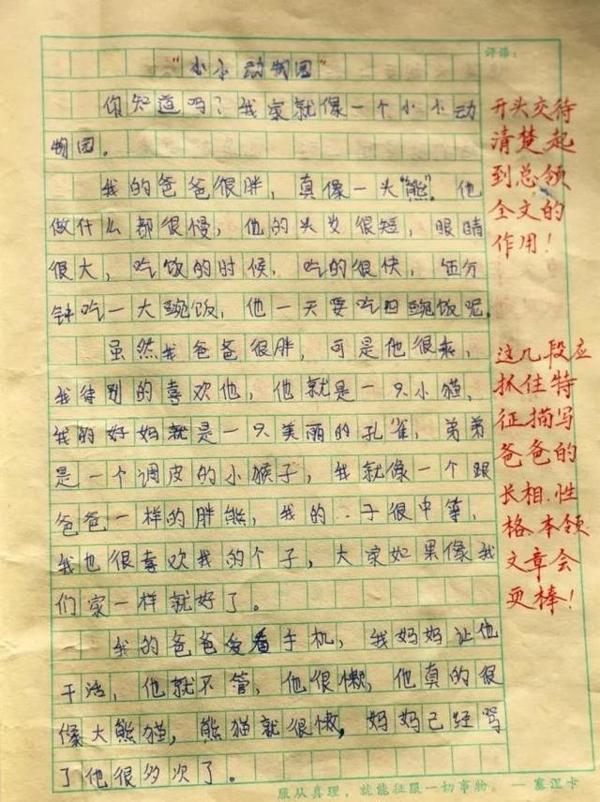 评语:
"小小动物园"
你知道吗?我家就像一个小小动
物园。
我的爸爸很胖，真像一头"熊"。他
做什么都很慢，他的头发很短，眼睛
很大，吃饭的时候，吃的很快，伍分
钟吃一大豌饭，他一天要吃四豌饭呢。
虽然我爸爸很胖，可是他很乖，
我待别的喜欢他，他就是一只小猫，
我的好妈就是一只美丽的孔雀，弟弟
是一个调皮的小猴子，我就像一个跟
爸爸一样的胖熊，我的 子很中等，
我也很喜欢我的个子，大家如果像我
们家一样就好了。
我的爸爸爱看手机，我妈妈让他
干活，他就不管，他很懒，他真的很
像大熊猫，熊猫就很懒，妈妈已经骂
了他很多次了。
服从真理，就能征服一切事物。——塞涅卡
开头交待
清楚起
到总领
全文的
作用!
这几段应
抓住特
征描写
爸爸的
长相.性
格.本领
文章会
更棒!